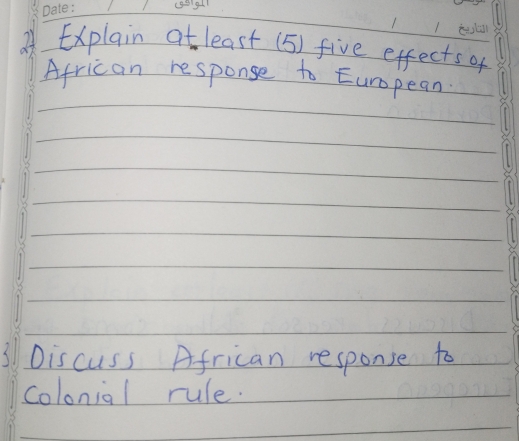 Date: / /
الموافق
/ / التاريخ
2) Explain at least (5) five effects of
African response to European.
3. Discuss African response to
Colonial rule.